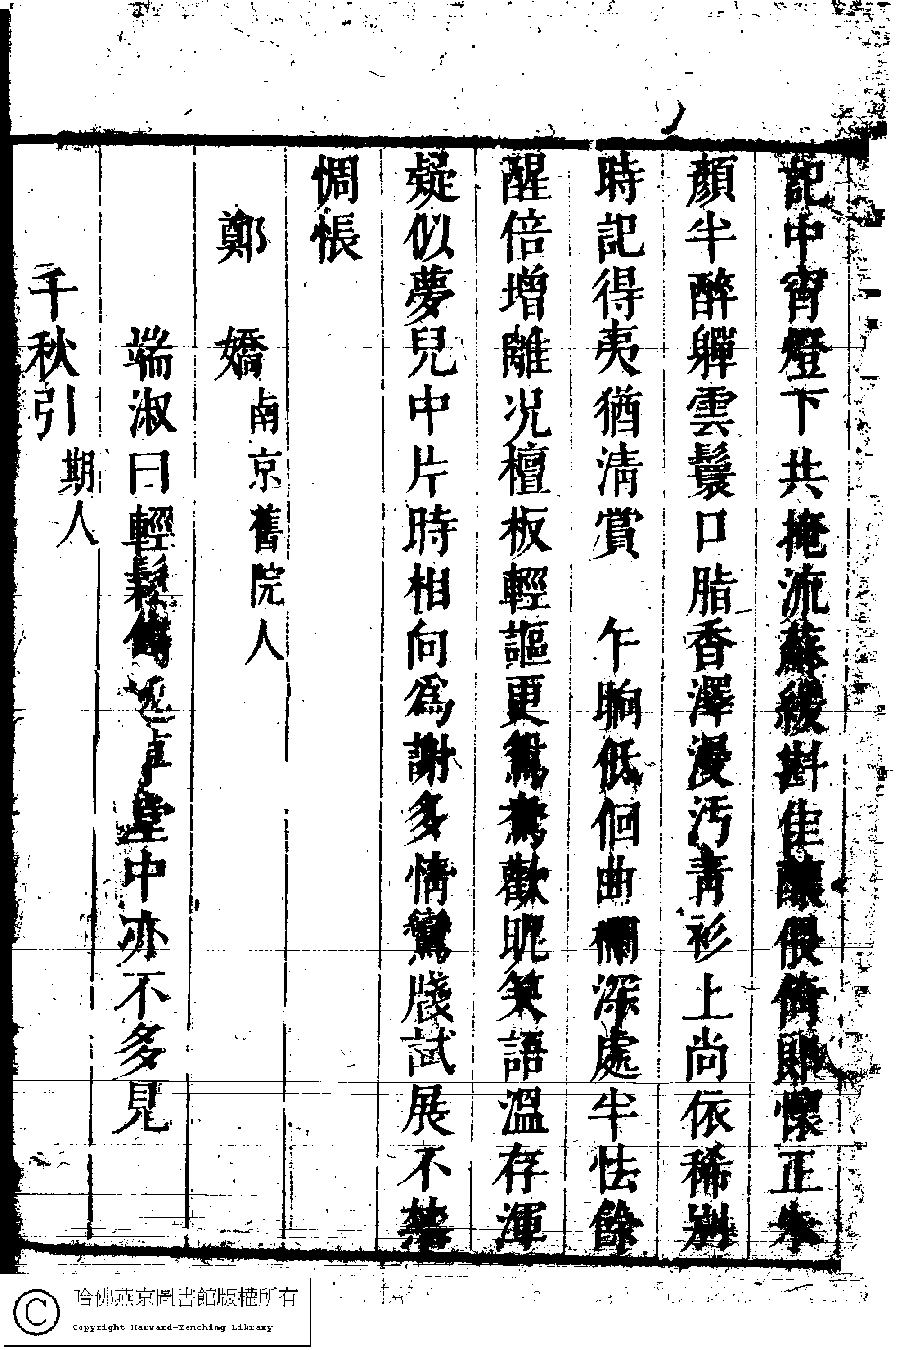 記中宵燈下共掩流蘇緩斟佳釀偎倚郎懷正朱
顏半醉軃雲鬟口脂香澤漫汚青衫上尚依稀別
時記得夷猶清賞　乍晌低徊曲欄深處半怯餘
醒倍增離况檀板輕謳更鴛鴦歡昵笑語溫存渾
疑似夢兒中片時相向爲謝多情鸞牋試展不禁
惆悵
鄭　嬌南京舊院人
端淑曰輕鬆堂中亦不多見
千秋引期人
哈佛燕京圖書館版權所有
Copyright Harvard-Yenching Library